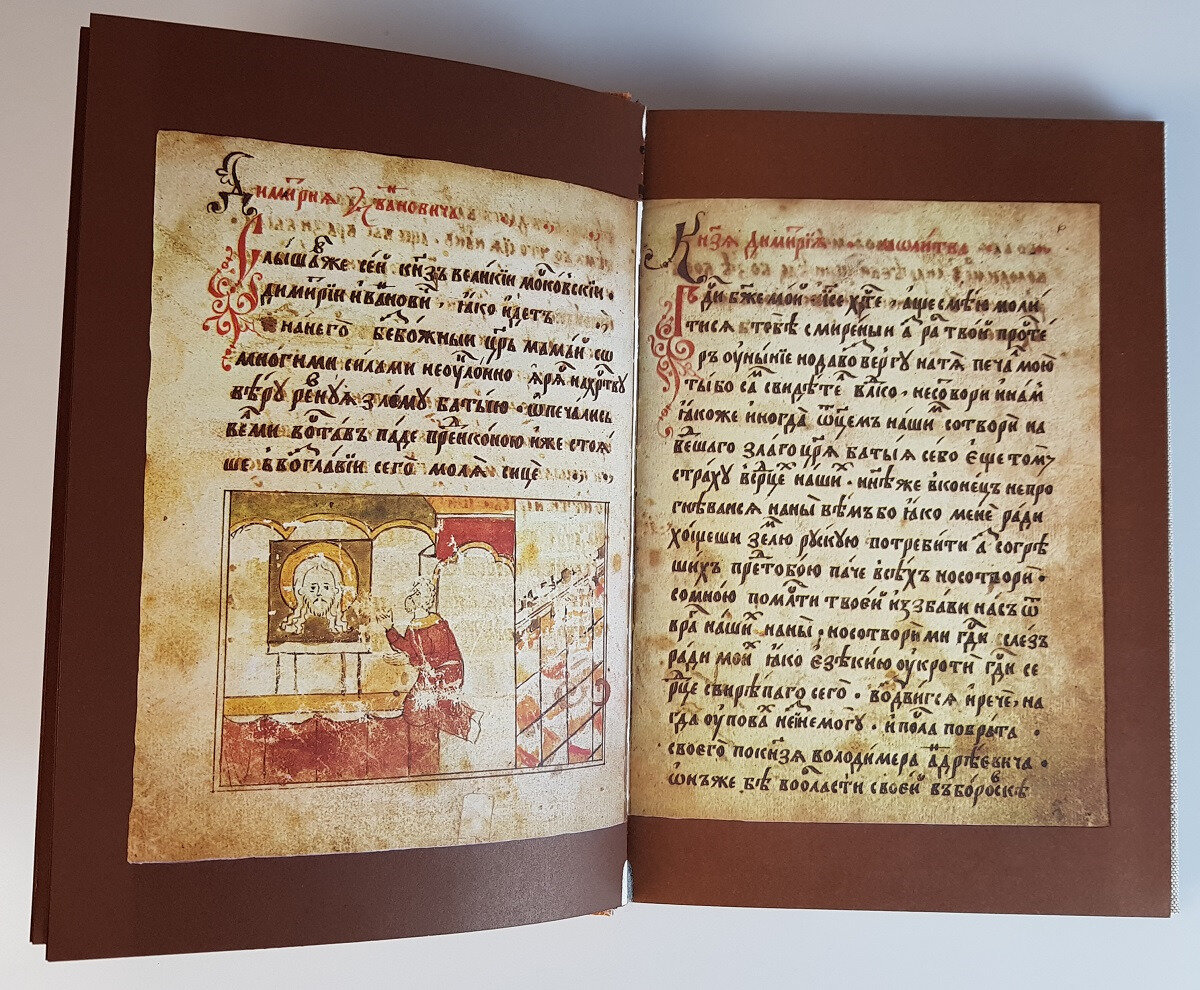 Димѝтрия Ивановича
Слышавже сеи кн҃зь великии московскии
димитрии иванови, ꙗко идетъ
нанего безбожныи цр҃ь мамаи со
многими силами неоуклонно ꙗряс нахрс҃тву
вѣру ревнуя злому батыю · ѿпечались
вел҃ми воставъ паде преⷣиконою иже стоꙗ
ше ввозглавии сего моляс сице
Кн҃зя димитрия молитва
Гдⷭ҇и бж҃е мои іс҃е хр҃те · аще смѣю моли
тися втебѣ смиреныи а раⷠ твои простѣ
ръ оуныние нодаво веръгу натя печал мою
тыбо самъ свидѣтел влⷣко · несотвори г҃и нам
ꙗкоже иногда ѿц҃емъ нашиⷨ сотвори на
ведшаго злаго цр҃я батыя себо еще томꙋ
страху всрⷣце нашиⷯ · и нн҃ѣже вконецъ непро
гнѣваися наны вѣмъбо ꙗко мене ради
хощеши землю рускую потребити аз согрѣ
шихъ преⷣтобою паче всѣхъ носотвори ·
сомною по млⷭ҇ти твоеи избави насъ ѿ
враⷢ наши наны, носотвори ми гдⷭ҇и слезъ
ради моиⷯ ꙗко езѣкию оукроти гдⷭ҇и се
рⷣце свирѣпаго сего · воздвигся и рече, на
гда оуповаⷯ не изнемогу · и посла по врата ·
своего покн҃зя володимера андрѣевича ·
ѡнъже бѣ вовласти своеи въборовскѣ